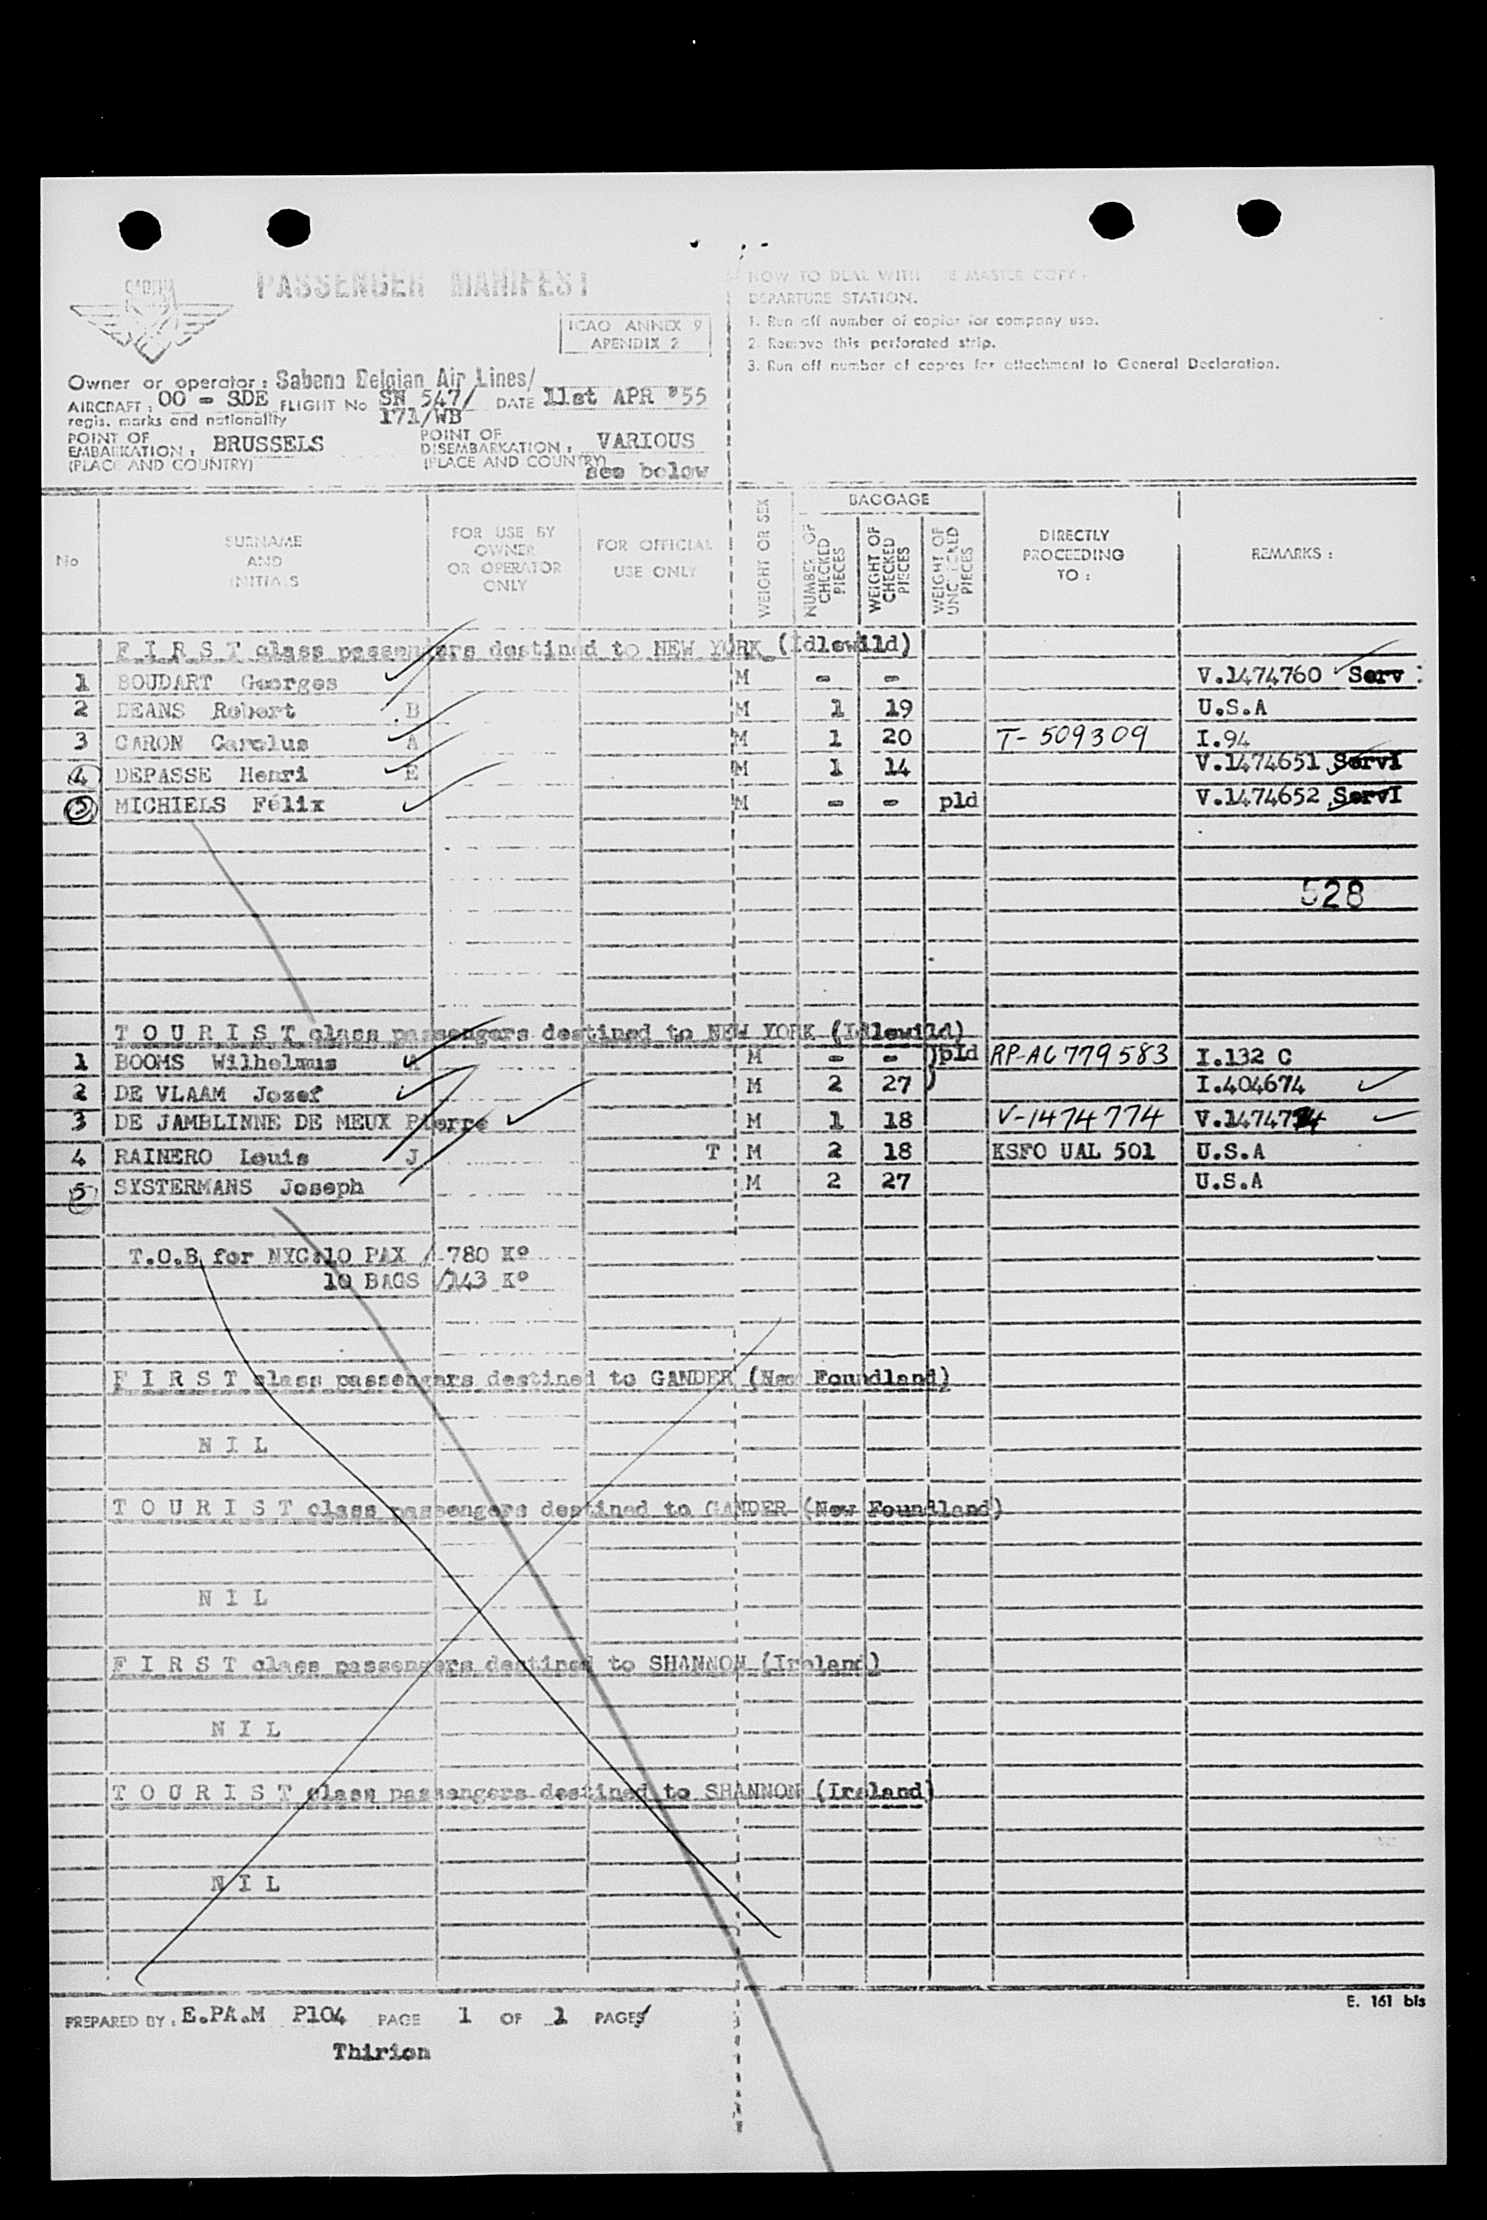 SABENA
PASSENGER MANIFEST
ICAO ANNEX 9
APENDIX 2
HOW TO DEAL WITH THE MASTER COPY.
DEPARTURE STATION.
1. Run off number of copies for company use.
2. Remove this perforated strip.
3. Run off number of copies for attachment to General Declaration.
Owner or operator: Sabena Belgian Air Lines/
AIRCRAFT: OO - SDE FLIGHT No SN 547/ DATE 11st APR '55
regis. marks and nationality 171/WB
POINT OF EMBARKATION: BRUSSELS POINT OF DISEMBARKATION: VARIOUS
(PLACE AND COUNTRY) (PLACE AND COUNTRY) see below
No
SURNAME AND INITIALS
FOR USE BY OWNER OR OPERATOR ONLY
FOR OFFICIAL USE ONLY
WEIGHT OR SEX
BAGGAGE
NUMBER OF CHECKED PIECES
WEIGHT OF CHECKED PIECES
WEIGHT OF UNCHECKED PIECES
DIRECTLY PROCEEDING TO:
REMARKS:
F I R S T class passengers destined to NEW YORK (Idlewild)
1 BOUDART Georges M - - V.1474760 Serv
2 DEANS Robert B M 1 19 U.S.A
3 CARON Carolus A M 1 20 T-509309 I.94
4 DEPASSE Henri E M 1 14 V.1474651 ServI
5 MICHIELS Félix M - - pld V.1474652 ServI
528
T O U R I S T class passengers destined to NEW YORK (Idlewild)
1 BOOMS Wilhelmus A M - - )pld RP-AC779583 I.132 C
2 DE VLAAM Jozef M 2 27 ) I.404674
3 DE JAMBLINNE DE MEUX Pierre M 1 18 V-1474774 V.1474774
4 RAINERO Louis J T M 2 18 KSFO UAL 501 U.S.A
5 SYSTERMANS Joseph M 2 27 U.S.A
T.O.B for NYC:10 PAX / 780 K°
10 BAGS /143 K°
F I R S T class passengers destined to GANDER (New Foundland)
N I L
T O U R I S T class passengers destined to GANDER (New Foundland)
N I L
F I R S T class passengers destined to SHANNON (Ireland)
N I L
T O U R I S T class passengers destined to SHANNON (Ireland)
N I L
E. 161 bis
PREPARED BY: E.PA.M P104 PAGE 1 OF 1 PAGES
Thirion